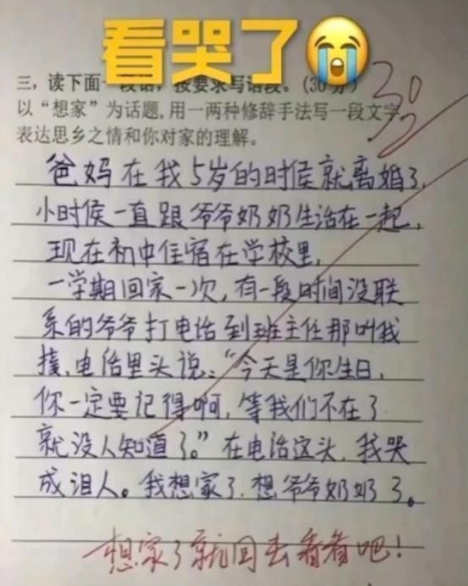 看哭了😭
三，读下面一段话，按要求写语段。(30分)
30
以“想家”为话题,用一两种修辞手法写一段文字,
表达思乡之情和你对家的理解。
爸妈在我5岁的时候就离婚了,
小时候一直跟爷爷奶奶生活在一起,
现在初中住宿在学校里,
一学期回家一次,有一段时间没联
系的爷爷打电话到班主任那叫我
接,电话里头说:“今天是你生日,
你一定要记得啊,等我们不在了
就没人知道了。”在电话这头,我哭
成泪人。我想家了,想爷爷奶奶了。
想家了就回去看看吧!